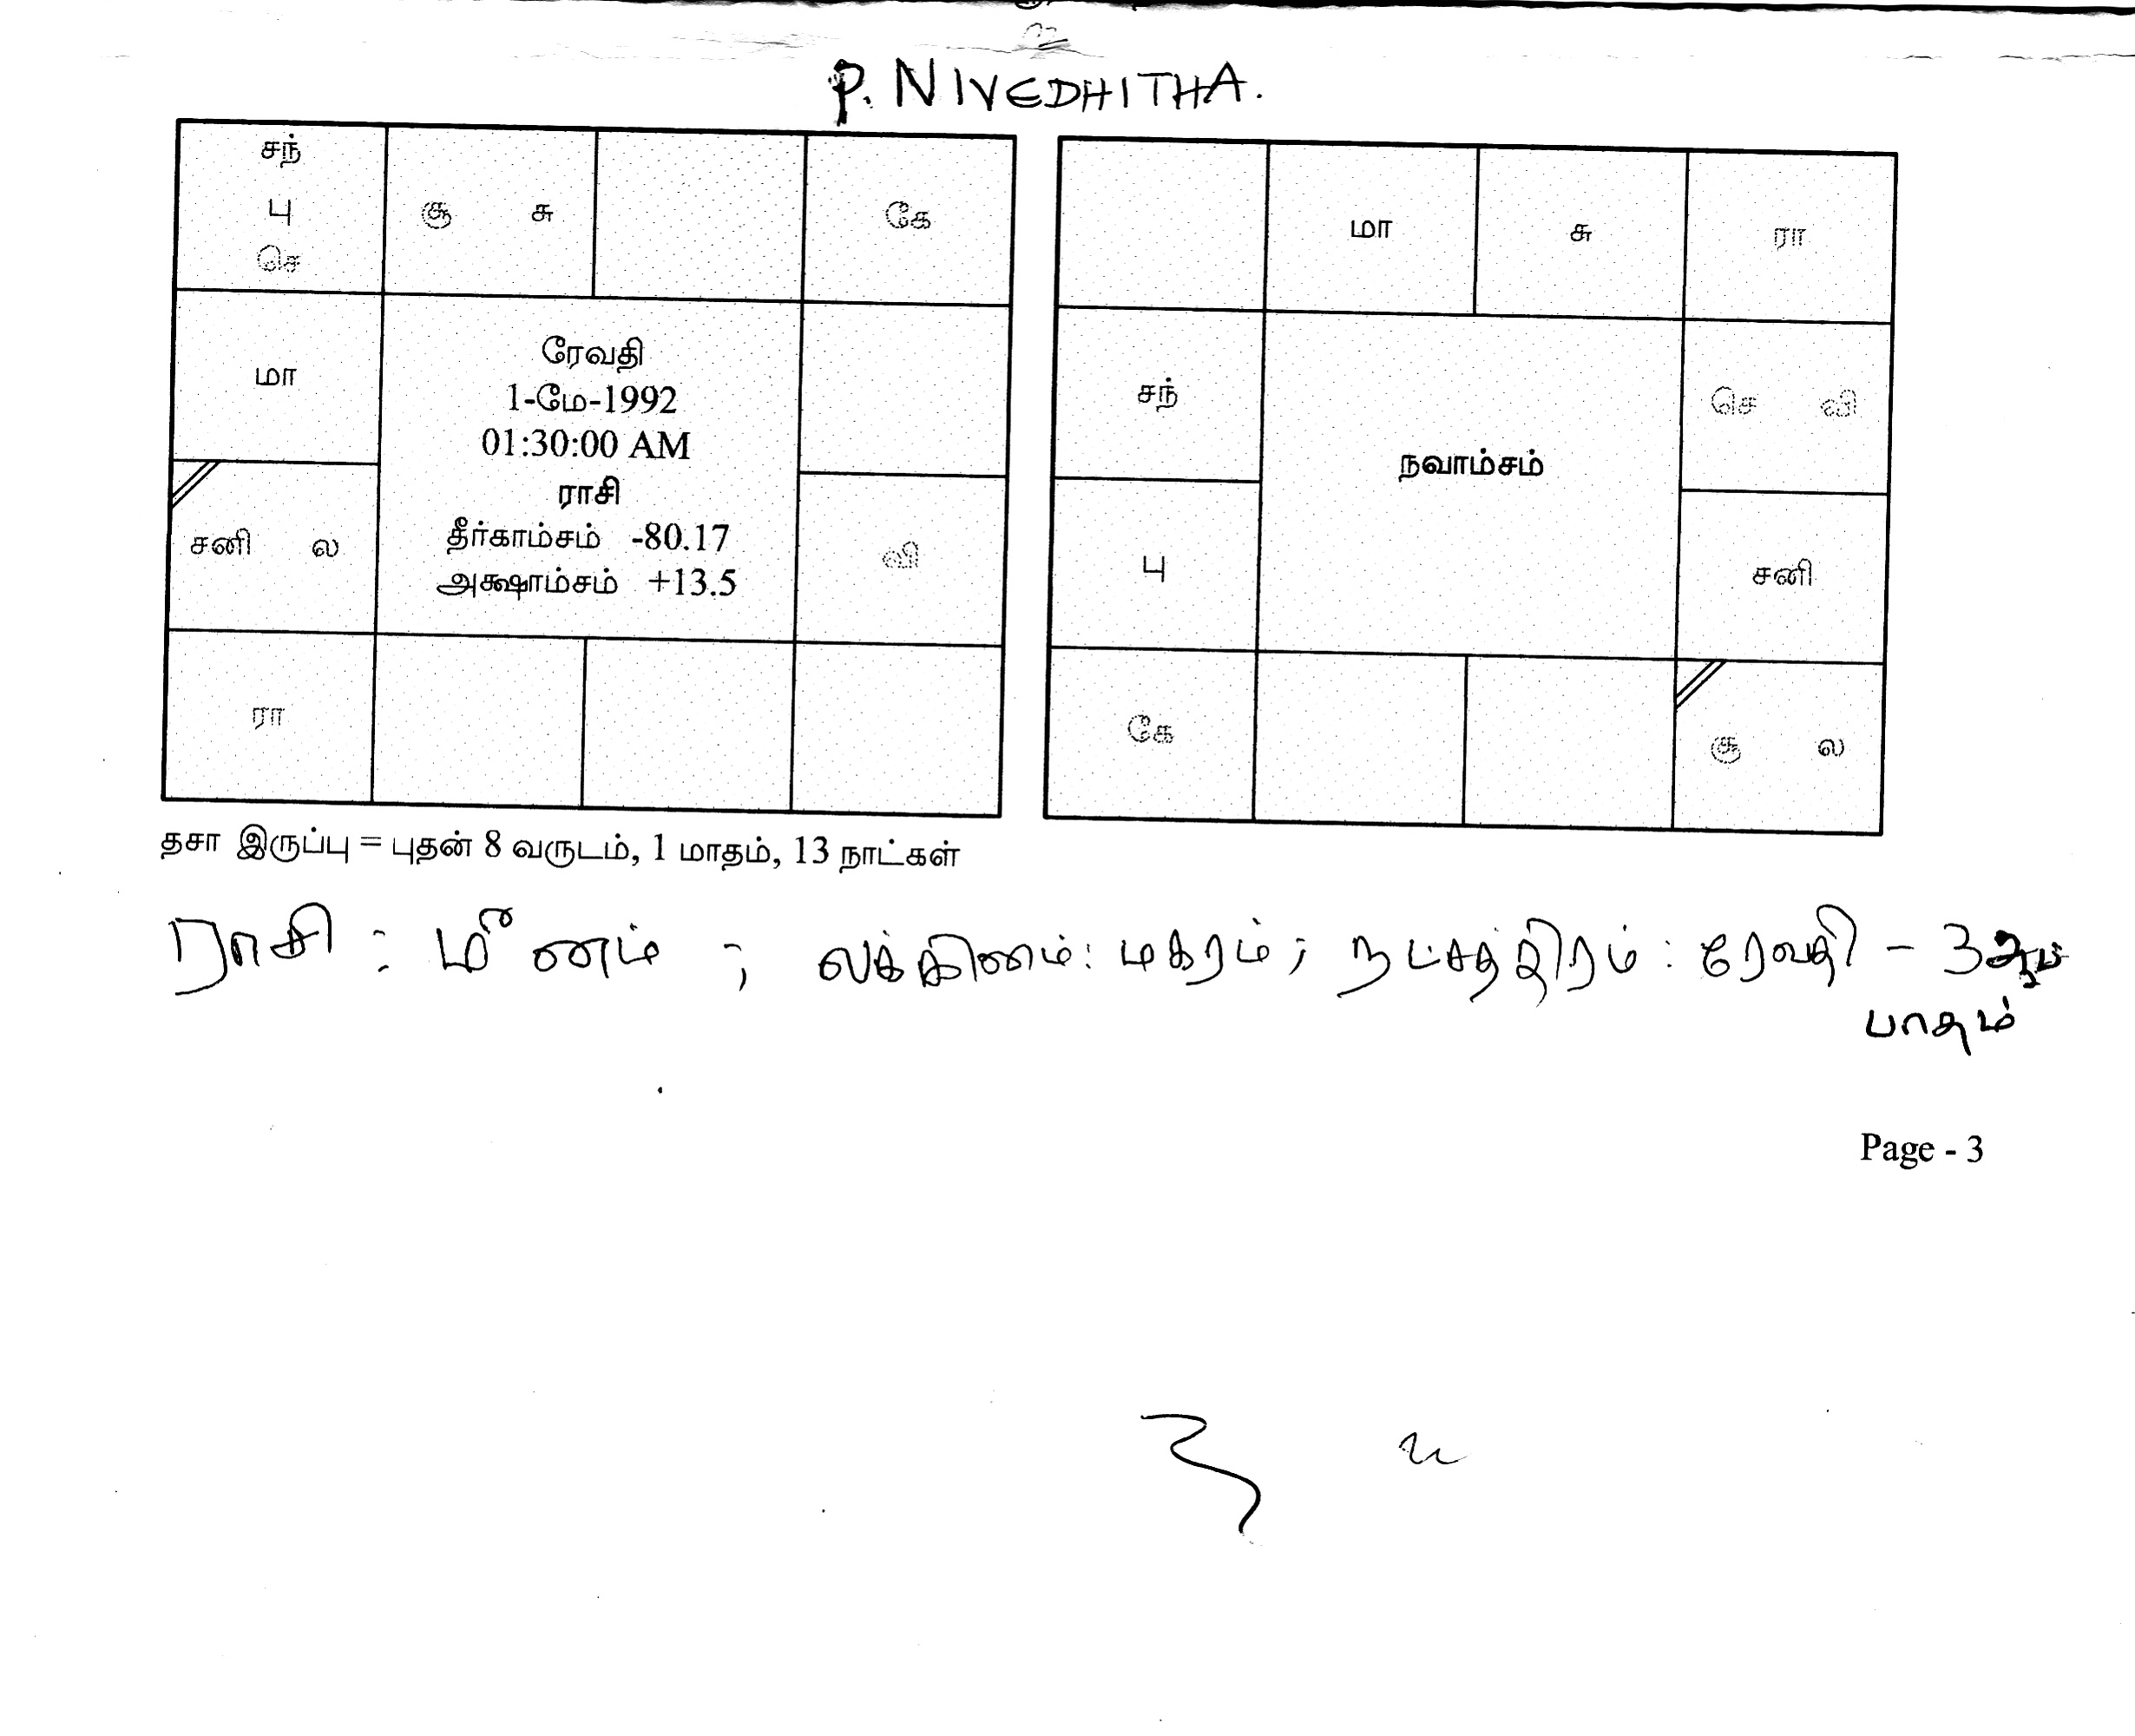 P. NIVEDHITHA.
சந்
பு
செ
சூ சு
கே
மா
சனி ல
வி
ரா
ரேவதி
1-மே-1992
01:30:00 AM
ராசி
தீர்காம்சம் -80.17
அக்ஷாம்சம் +13.5
மா
சு
ரா
சந்
செ வி
நவாம்சம்
பு
சனி
கே
சூ ல
தசா இருப்பு = புதன் 8 வருடம், 1 மாதம், 13 நாட்கள்
ராசி : மீனம் ; லக்கினம் : மகரம் ; நட்சத்திரம் : ரேவதி - 3ஆம்
பாதம்
Page - 3